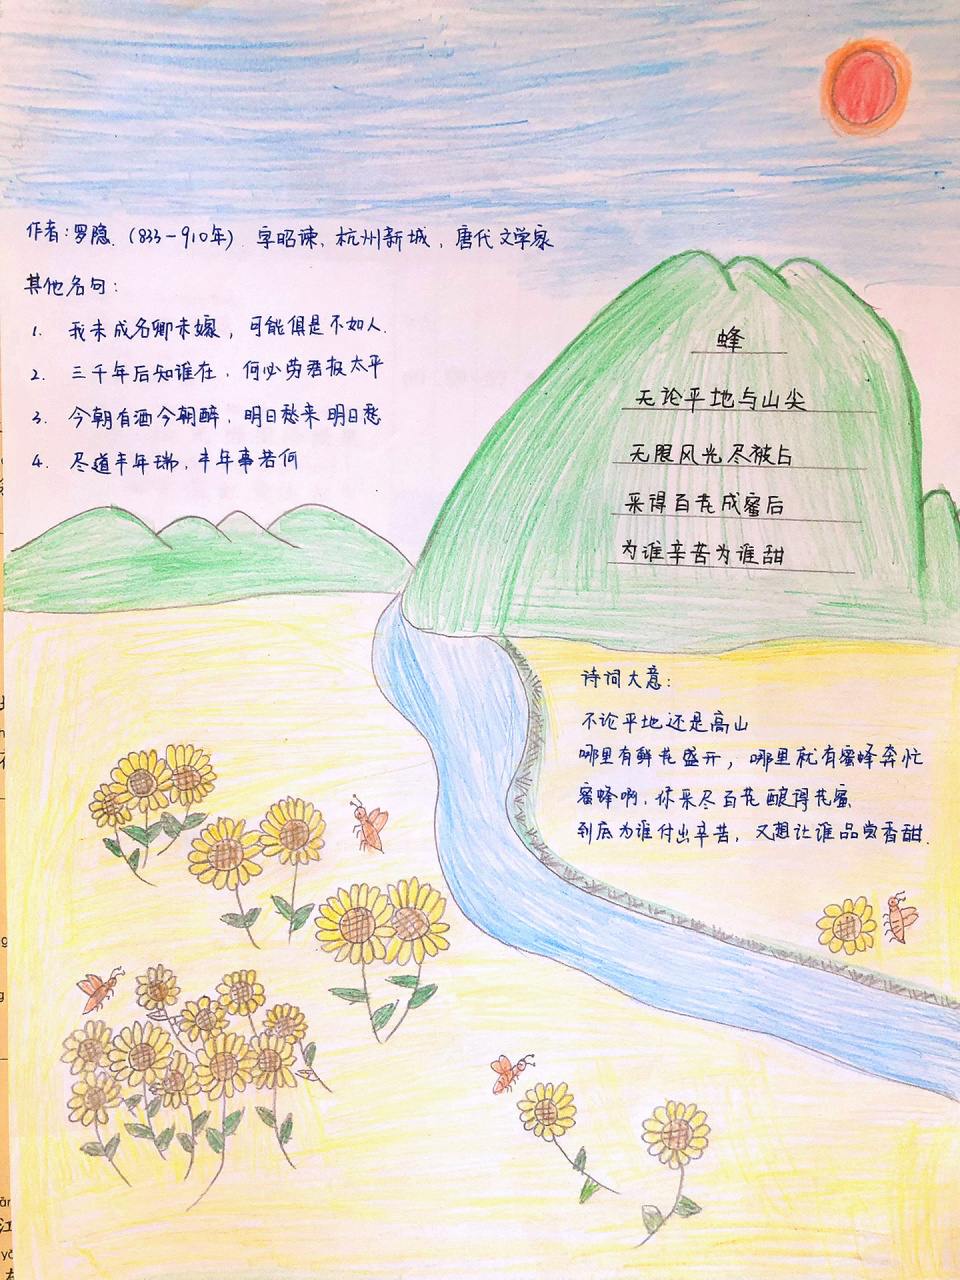 作者：罗隐.（833－910年）.字昭谏、杭州新城，唐代文学家
其他名句：
1. 我未成名卿未嫁，可能俱是不如人.
2. 三千年后知谁在，何必劳君报太平
3. 今朝有酒今朝醉，明日愁来明日愁
4. 尽道丰年瑞，丰年事若何
蜂
无论平地与山尖
无限风光尽被占
采得百花成蜜后
为谁辛苦为谁甜
诗词大意：
不论平地还是高山
哪里有鲜花盛开，哪里就有蜜蜂奔忙
蜜蜂啊，你采尽百花酿得花蜜
到底为谁付出辛苦，又想让谁品尝香甜.